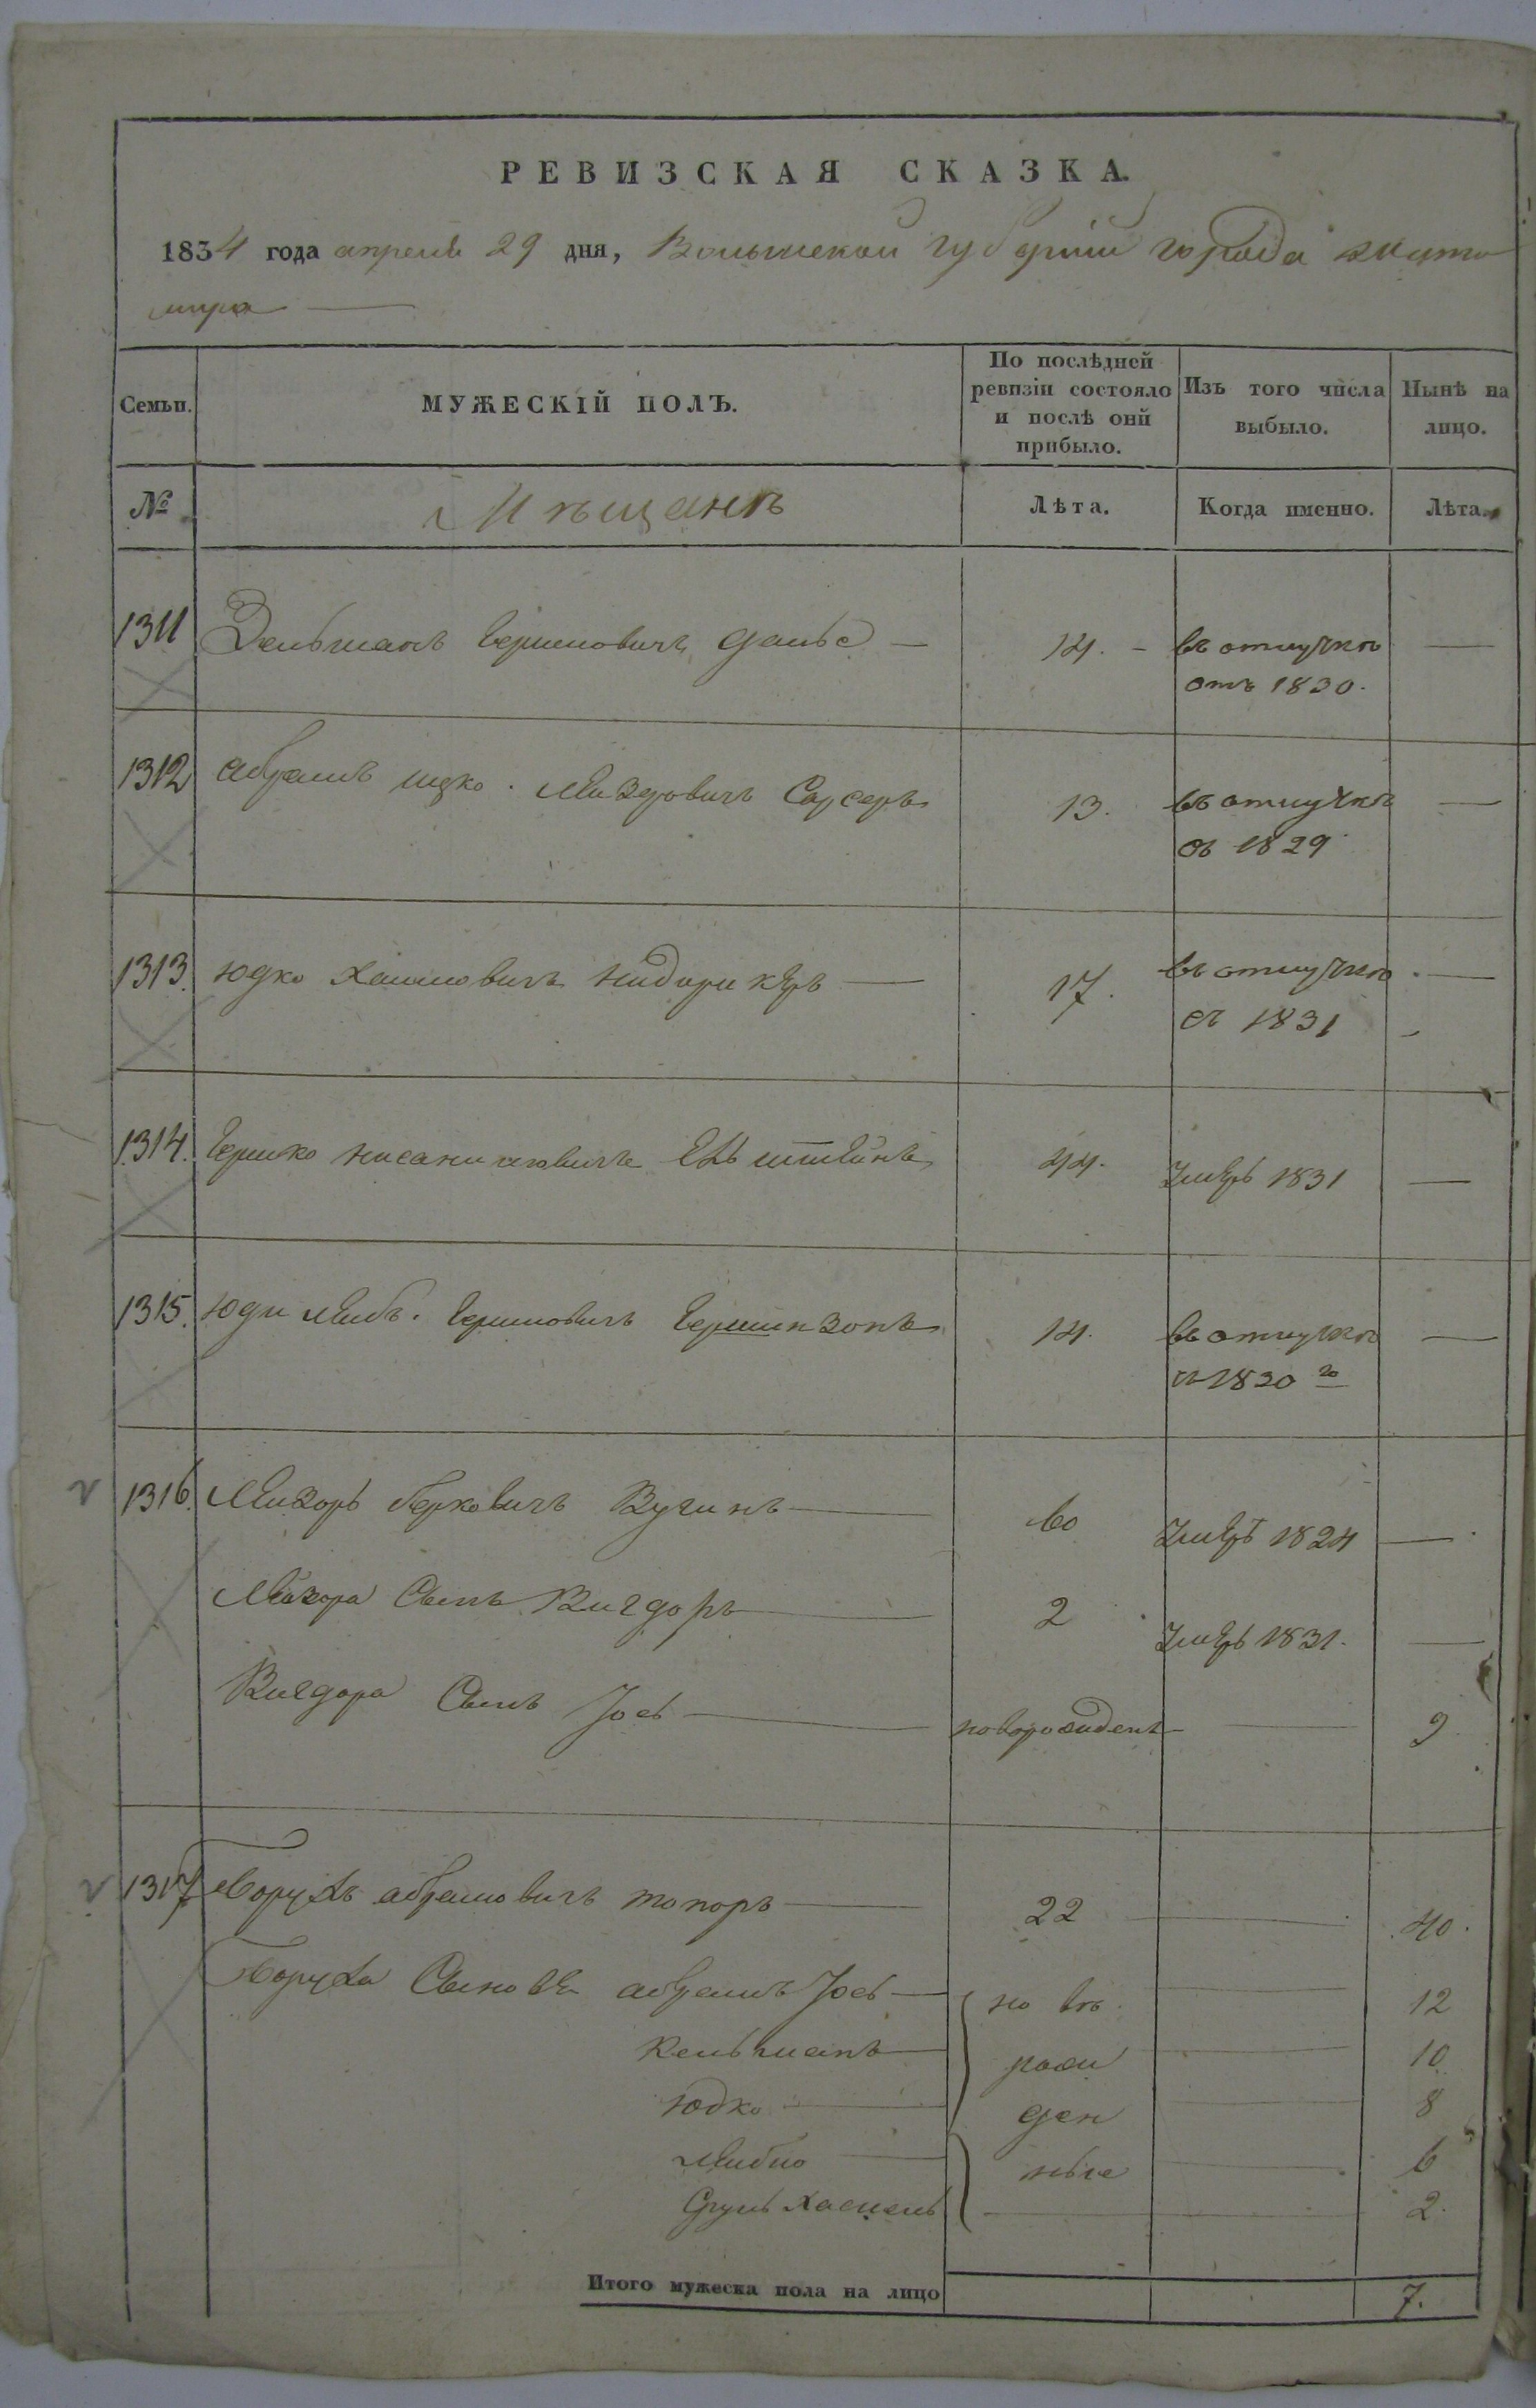 РЕВИЗСКАЯ СКАЗКА.
1834 года апреля 29 дня, Волынской губерніи города Жито
мира
Семьи.
МУЖЕСКІЙ ПОЛЪ.
По послѣдней
ревизіи состояло
и послѣ оной
прибыло.
Изъ того числа
выбыло.
Нынѣ на
лицо.
№
Мѣщанъ
Лѣта.
Когда именно.
Лѣта.
1311 Зельманъ Гершковичъ 14. въ отлучкѣ
отъ 1830.
1312 Абрамъ Ицко Лейзеровичъ 13. въ отлучкѣ
съ 1829
1313. Юдко Хаимовичъ 17. въ отлучкѣ
съ 1831
1314. Гершко 44. Умеръ 1831
1315. Лейбъ. Гершковичъ Гершензонъ 14. въ отлучкѣ
съ 1830 го
1316. Лейзоръ Берковичъ 60 Умеръ 1824
Лейзора Сынъ Вигдоръ 2 Умеръ 1831.
Вигдора Сынъ Іось новорожденъ 9
1317 Борухъ Абрамовичъ Топоръ 22 40.
Боруха Сыновья Абрамъ Іось но въ 12
Кельманъ рож 10
Юдко ден 8
Лейбко ные 6
Сруль Хаскель 2.
Итого мужеска пола на лицо 7.